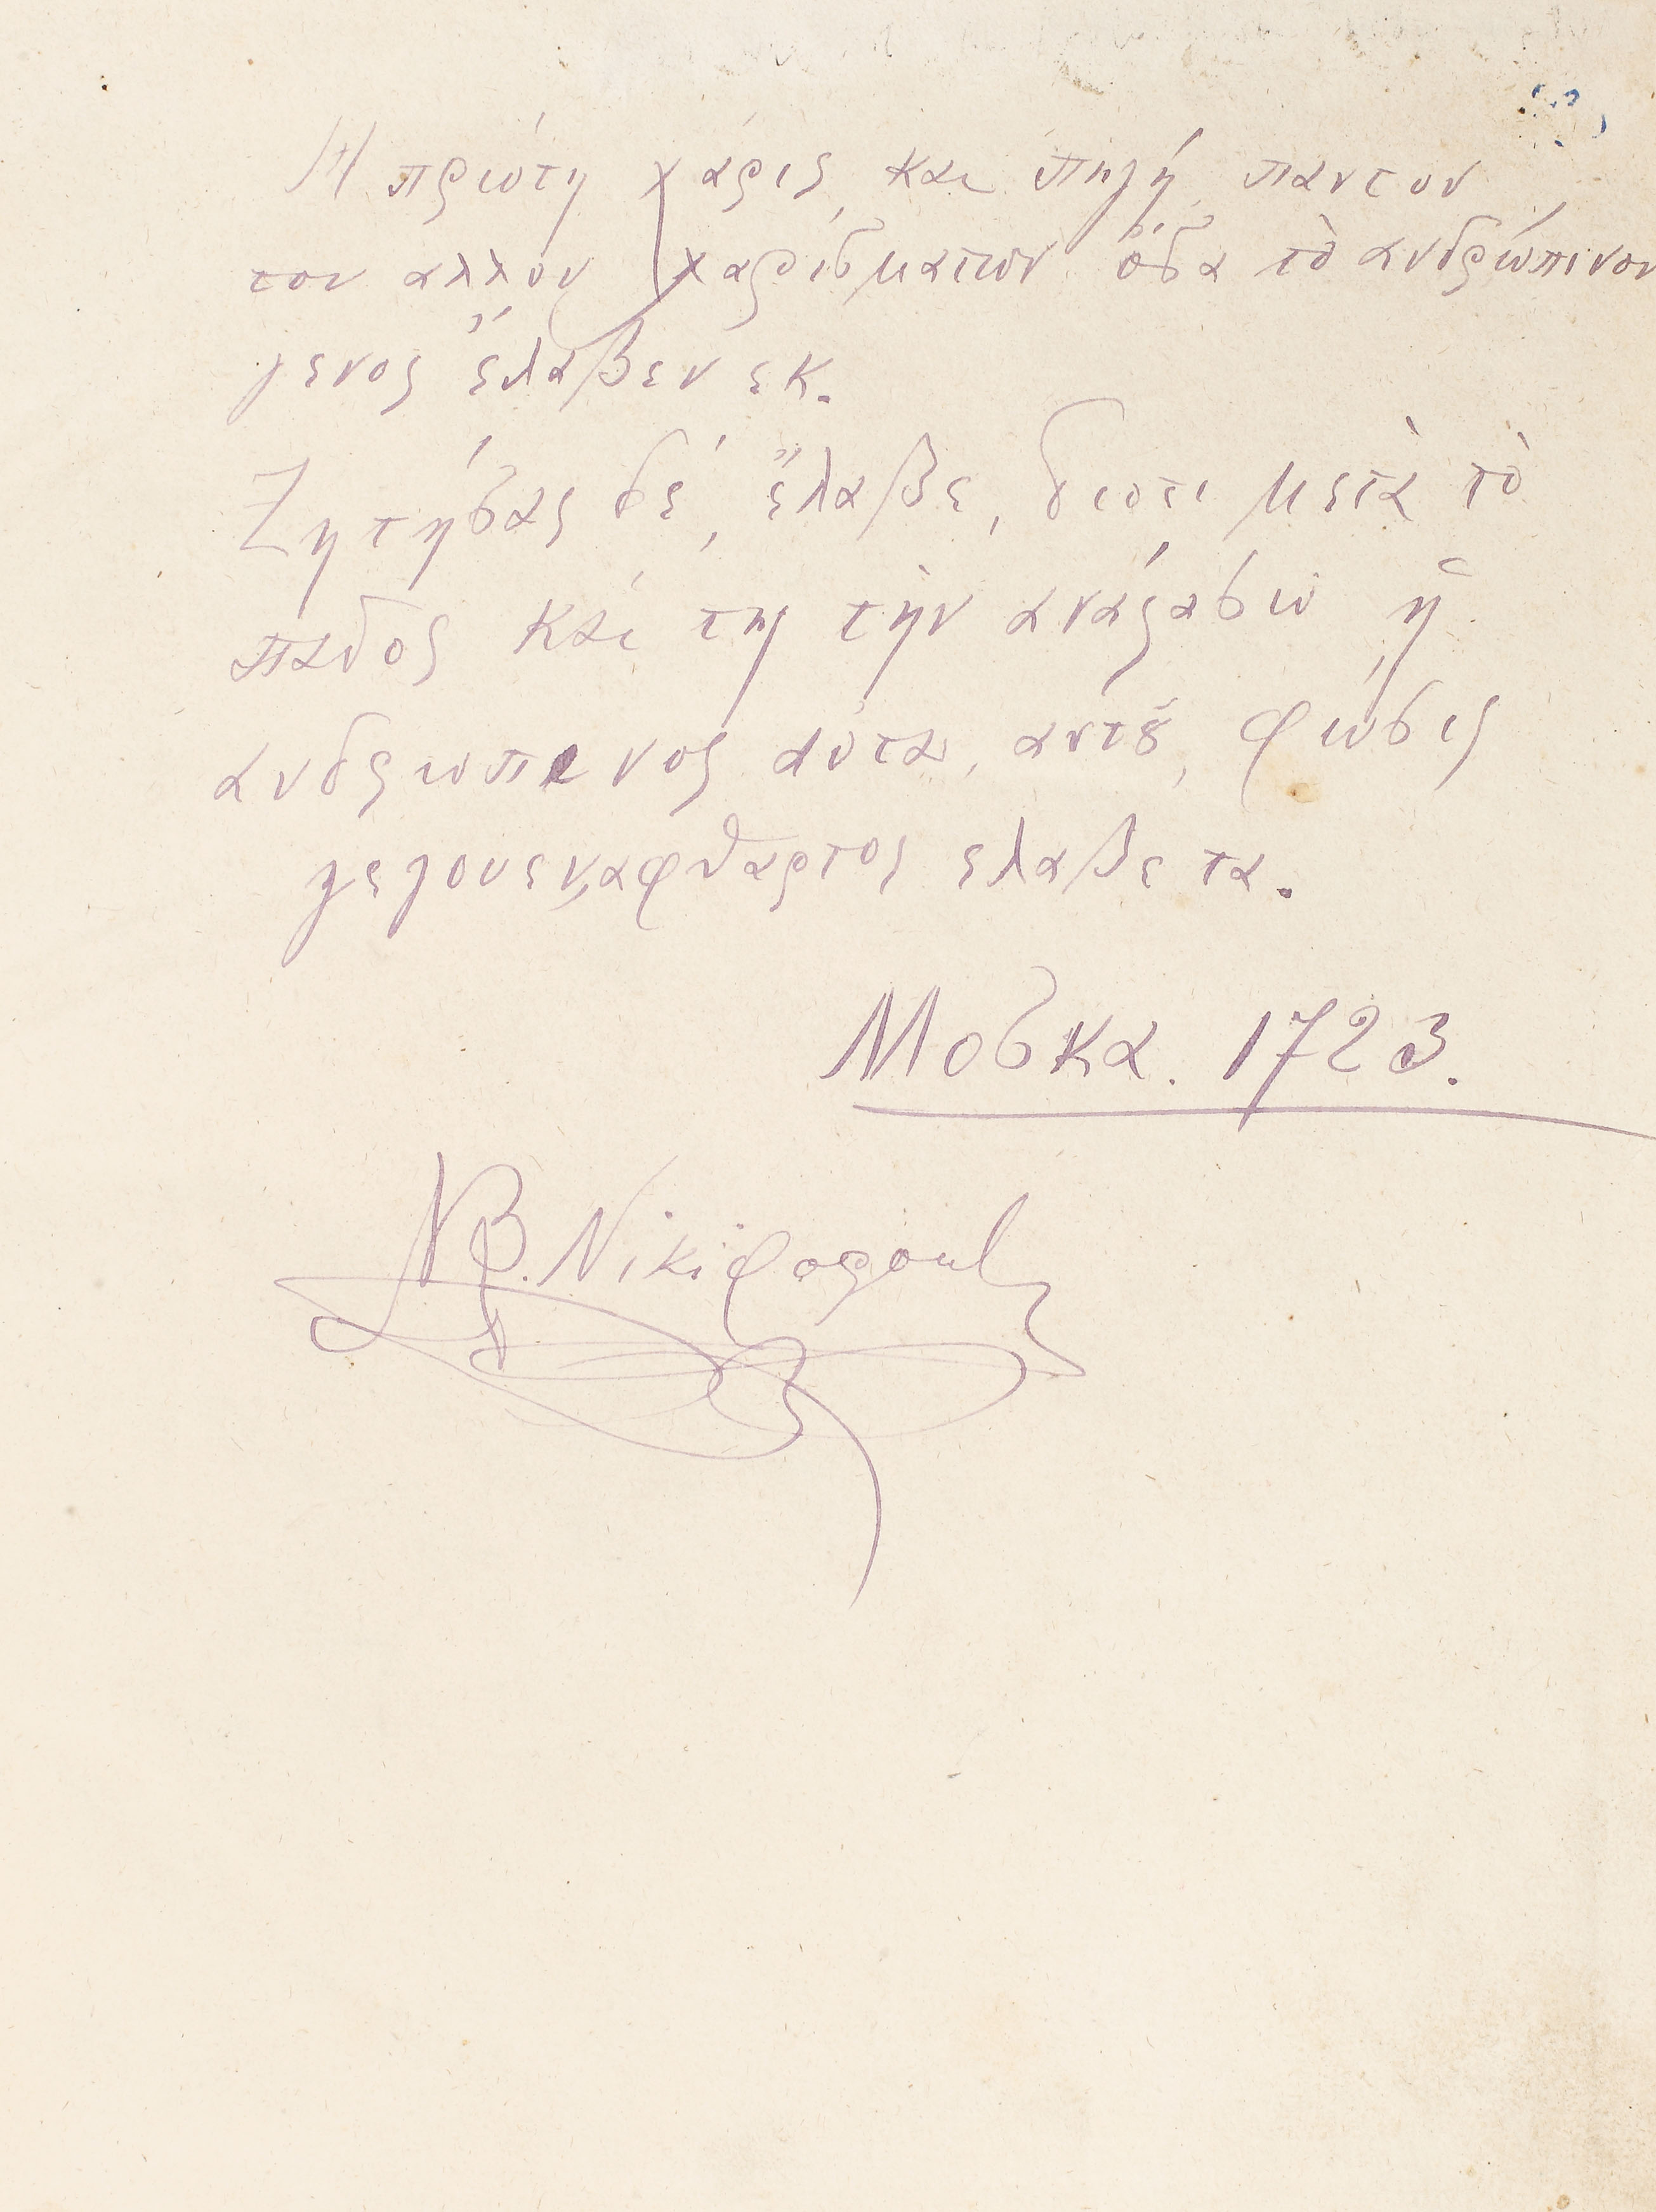 Η πρώτη χάρις, και πηγή παντον
τον αλλον χαρίσματων ὅσα τὸ ανθρώπινον
γενος ἔλαβεν εκ.
Ζητήσας δέ, ἔλαβε, διοτι μετὰ τὸ
παθος καί της τὴν ανάςασιω, ἡ
ανθρωπινος αυτα, αυτȣ, φώσις
γεγουεν, αφθαρτος ελαβε τα.
Μοσκα. 1723.
Ν Β. Νικιφορουλ